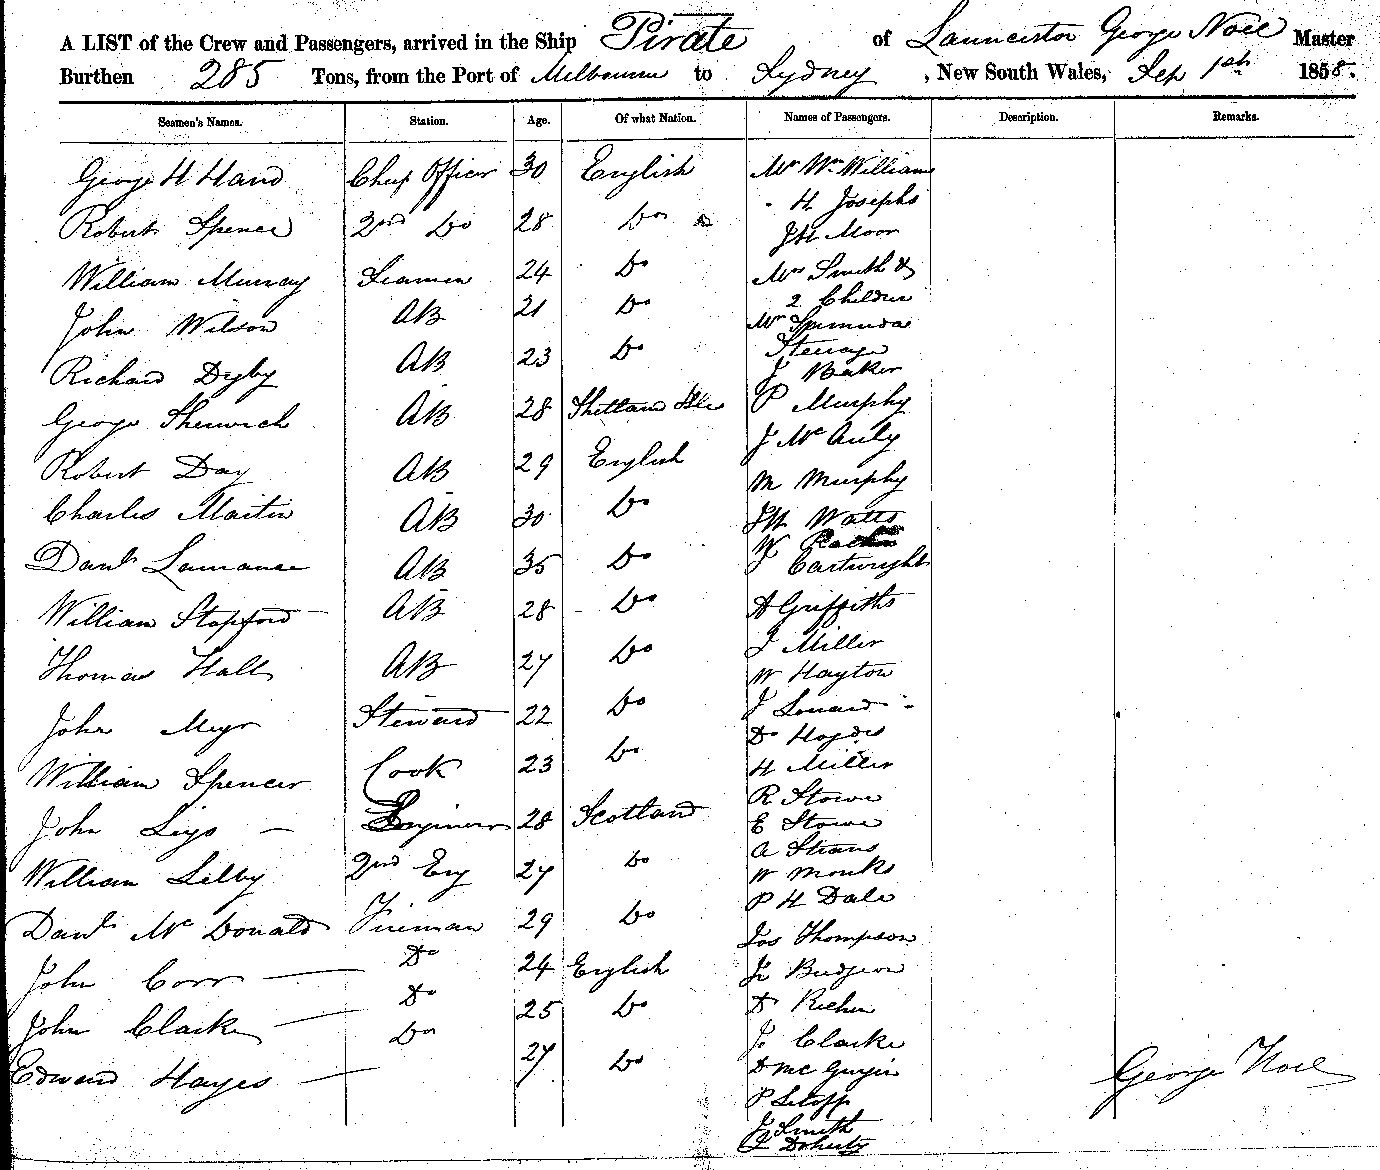 A LIST of the Crew and Passengers, arrived in the Ship Pirate of Launceston George Noel Master
Burthen 285 Tons, from the Port of Melbourne to Sydney, New South Wales, Sep 1st 1858.
Seamen's Names. Station. Age. Of what Nation. Names of Passengers. Description. Remarks.
George H Hand Chief Officer 30 English Mr Wm William
" H Josephs
Robert Spence 2nd Do 28 Do
J H Moor
William Murray Seamen 24 Do Mrs Smith &
2 Children
John Wilson AB 21 Do
Mr Samuda
Steerage
Richard Dyby AB 23 Do J Baker
George AB 28 Shetland Isles P Murphy
J Mc Auly
Robert Day AB 29 English
M Murphy
Charles Martin AB 30 Do
J H Watts
W
Danl Lawrance AB 35 Do J Cartwright
William Stopford AB 28 Do A Griffiths
J Miller
Thomas Hall AB 27 Do
W Hayton
John Meyr Steward 22 Do J
D Hoyds
William Spencer Cook 23 Do H Miller
R Stowe
John Engineer 28 Scotland E Stowe
A
William Lilly 2nd Eng 27 Do W Monks
P H Dale
Danl Mc Donald Fireman 29 Do
Jos Thompson
John Corr Do 24 English
J
John Clark Do 25 Do D
Do J Clarke
Edward Hayes 27 Do D Mc
George Noel
P
J Smith
J Doherty